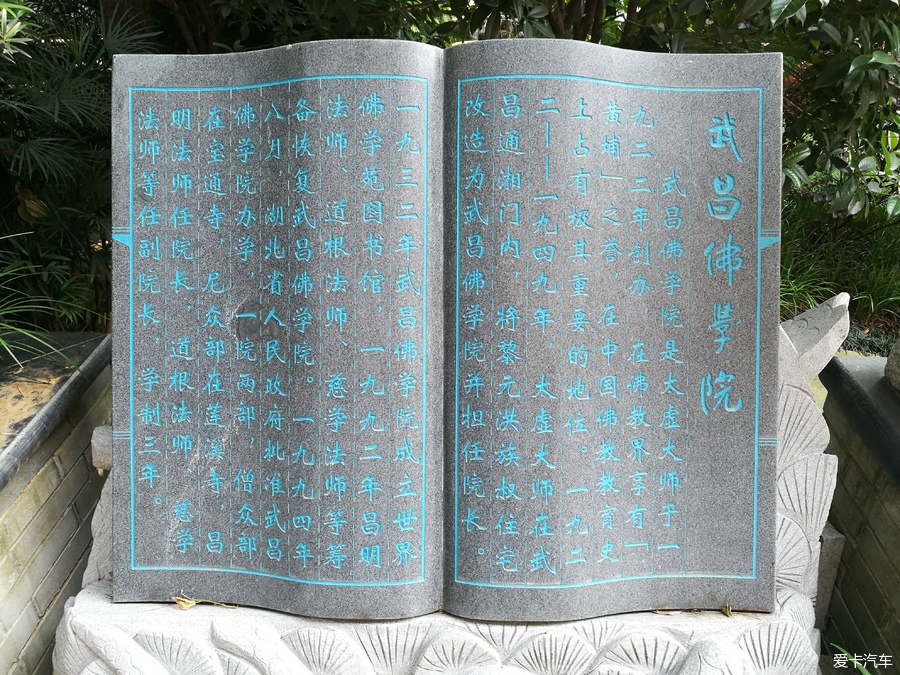 武昌佛学院
武昌佛学院是太虚大师于一
九二二年创办，在佛教界享有「
黄埔」之誉，在中国佛教教育史
上占有极其重要的地位。一九二
二——一九四九年，太虚大师在武
昌通湘门内，将黎元洪族叔住宅
改造为武昌佛学院并担任院长。
一九三二年武昌佛学院成立世界
佛学苑图书馆，一九九二年昌明
法师、道根法师、慈学法师等筹
备恢复武昌佛学院。一九九四年
八月，湖北省人民政府批准武昌
佛学院办学，一院两部，僧众部
在宝通寺，尼众部在莲溪寺，昌
明法师任院长，道根法师 慈学
法师等任副院长，学制三年。
爱卡汽车